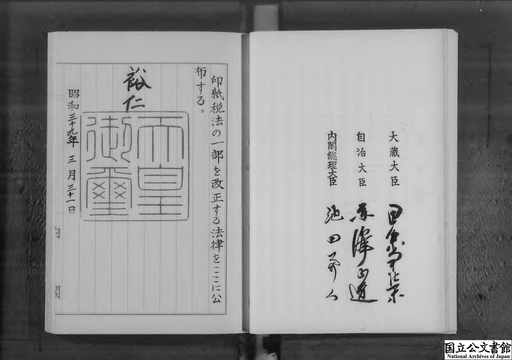 大蔵大臣 田中角榮
自治大臣 赤澤正道
内閣総理大臣 池田勇人
印紙税法の一部を改正する法律をここに公
布する。
裕仁
天皇
御璽
昭和三十九年三月三十一日
内閣
国立公文書館
National Archives of Japan